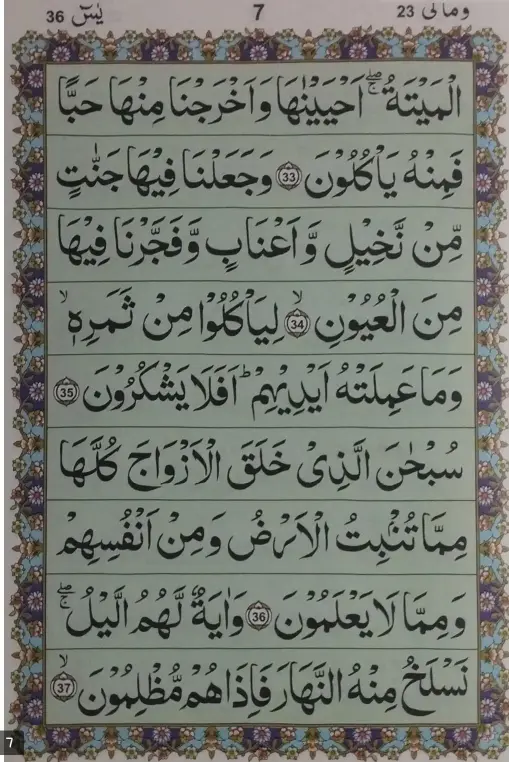 وما لی 23 7 یٰسٓ 36
الْمَیْتَةُ ۖۚ اَحْیَیْنٰهَا وَاَخْرَجْنَا مِنْهَا حَبًّا
فَمِنْهُ یَاْكُلُوْنَ 33 وَجَعَلْنَا فِیْهَا جَنّٰتٍ
مِّنْ نَّخِیْلٍ وَّاَعْنَابٍ وَّفَجَّرْنَا فِیْهَا
مِنَ الْعُیُوْنِ ۙ 34 لِیَاْكُلُوْا مِنْ ثَمَرِهٖ ۙ
وَمَا عَمِلَتْهُ اَیْدِیْهِمْ ؕ اَفَلَا یَشْكُرُوْنَ 35
سُبْحٰنَ الَّذِیْ خَلَقَ الْاَزْوَاجَ كُلَّهَا
مِمَّا تُنْۢبِتُ الْاَرْضُ وَمِنْ اَنْفُسِهِمْ
وَمِمَّا لَا یَعْلَمُوْنَ 36 وَاٰیَةٌ لَّهُمُ الَّیْلُ ۖۚ
نَسْلَخُ مِنْهُ النَّهَارَ فَاِذَا هُمْ مُّظْلِمُوْنَ ۙ 37
7